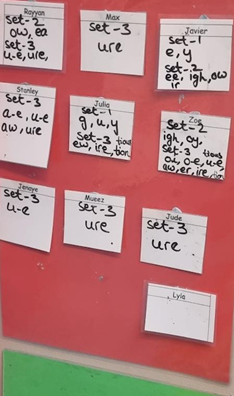 Rayyan
set-2
ow, ea
set-3
u-e, ure,
Max
set-3
ure
Javier
set-1
e, y
set-2
ee, igh, ow
ir
Stanley
set-3
a-e, u-e
aw, ure
Julia
set-1
g, u, y
set-3 tious
ew, ire, tion
Zoe
set-2
igh, oy,
set-3 tious
oi, o-e, u-e
aw, er, ire
set-3
u-e
Mueez
set-3
ure
Jude
set-3
ure
Lyla